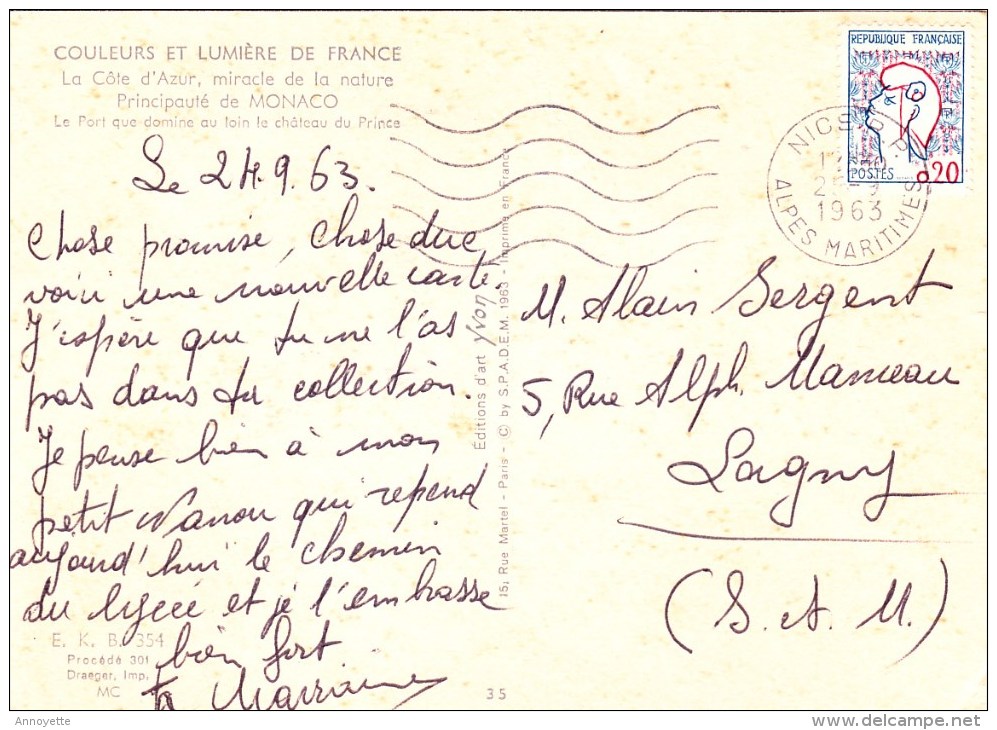 COULEURS ET LUMIÈRE DE FRANCE
La Côte d'Azur, miracle de la nature
Principauté de MONACO
Le Port que domine au loin le château du Prince
Le 24.9.63.
Chose promise, chose due,
voici une nouvelle carte.
J'espère que tu ne l'as
pas dans ta collection.
Je pense bien à mon
petit Nanou qui repend
aujourd'hui le chemin
du lycée et je l'embrasse
bien fort
ta Marraine
E. K. B. 354
Procédé 301
Draeger, Imp.
MC
35
15, Rue Martel - Paris - © by S.P.A.D.E.M. 1963 - Imprimé en France
Éditions d'art Yvon
RÉPUBLIQUE FRANÇAISE
POSTES
0,20
NICE R.P.
1963
ALPES MARITIMES
M. Alain Sergent
5, Rue Alph. Manceau
Lagny
(S. et M.)
Annoyette
www.delcampe.net